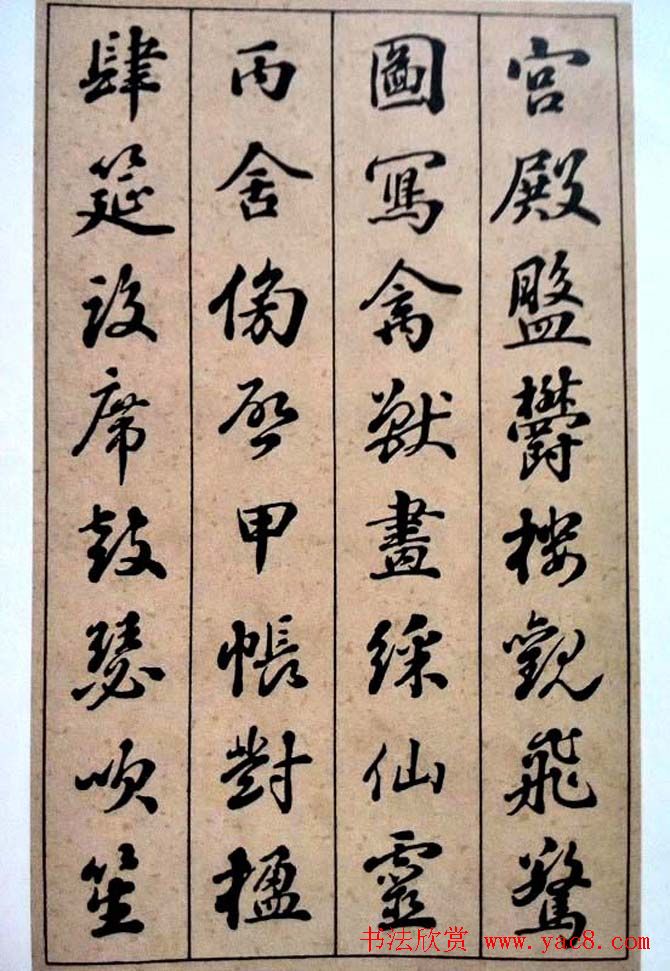 宮殿盤欝樓觀飛驚
圖寫禽獸畫綵仙靈
丙舍傍啓甲帳對楹
肆筵設席鼓瑟吹笙
书法欣赏 www.yac8.com